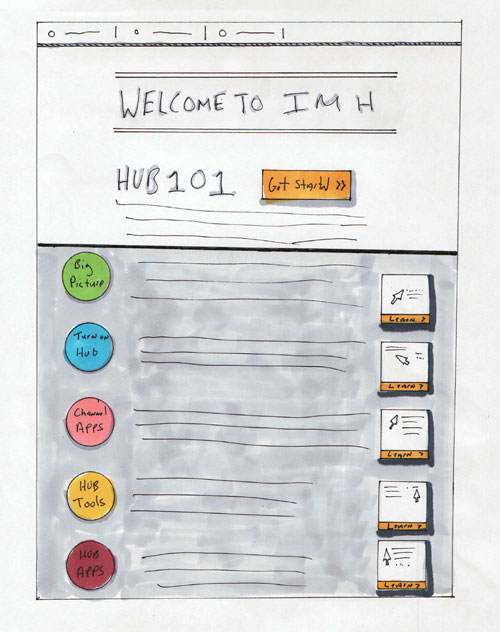 WELCOME TO IMH
HUB 101
Get Started >>
Big
Picture
LEARN >
Turn on
Hub
LEARN >
Channel
APPS
LEARN >
HUB
Tools
LEARN >
HUB
APPS
LEARN >